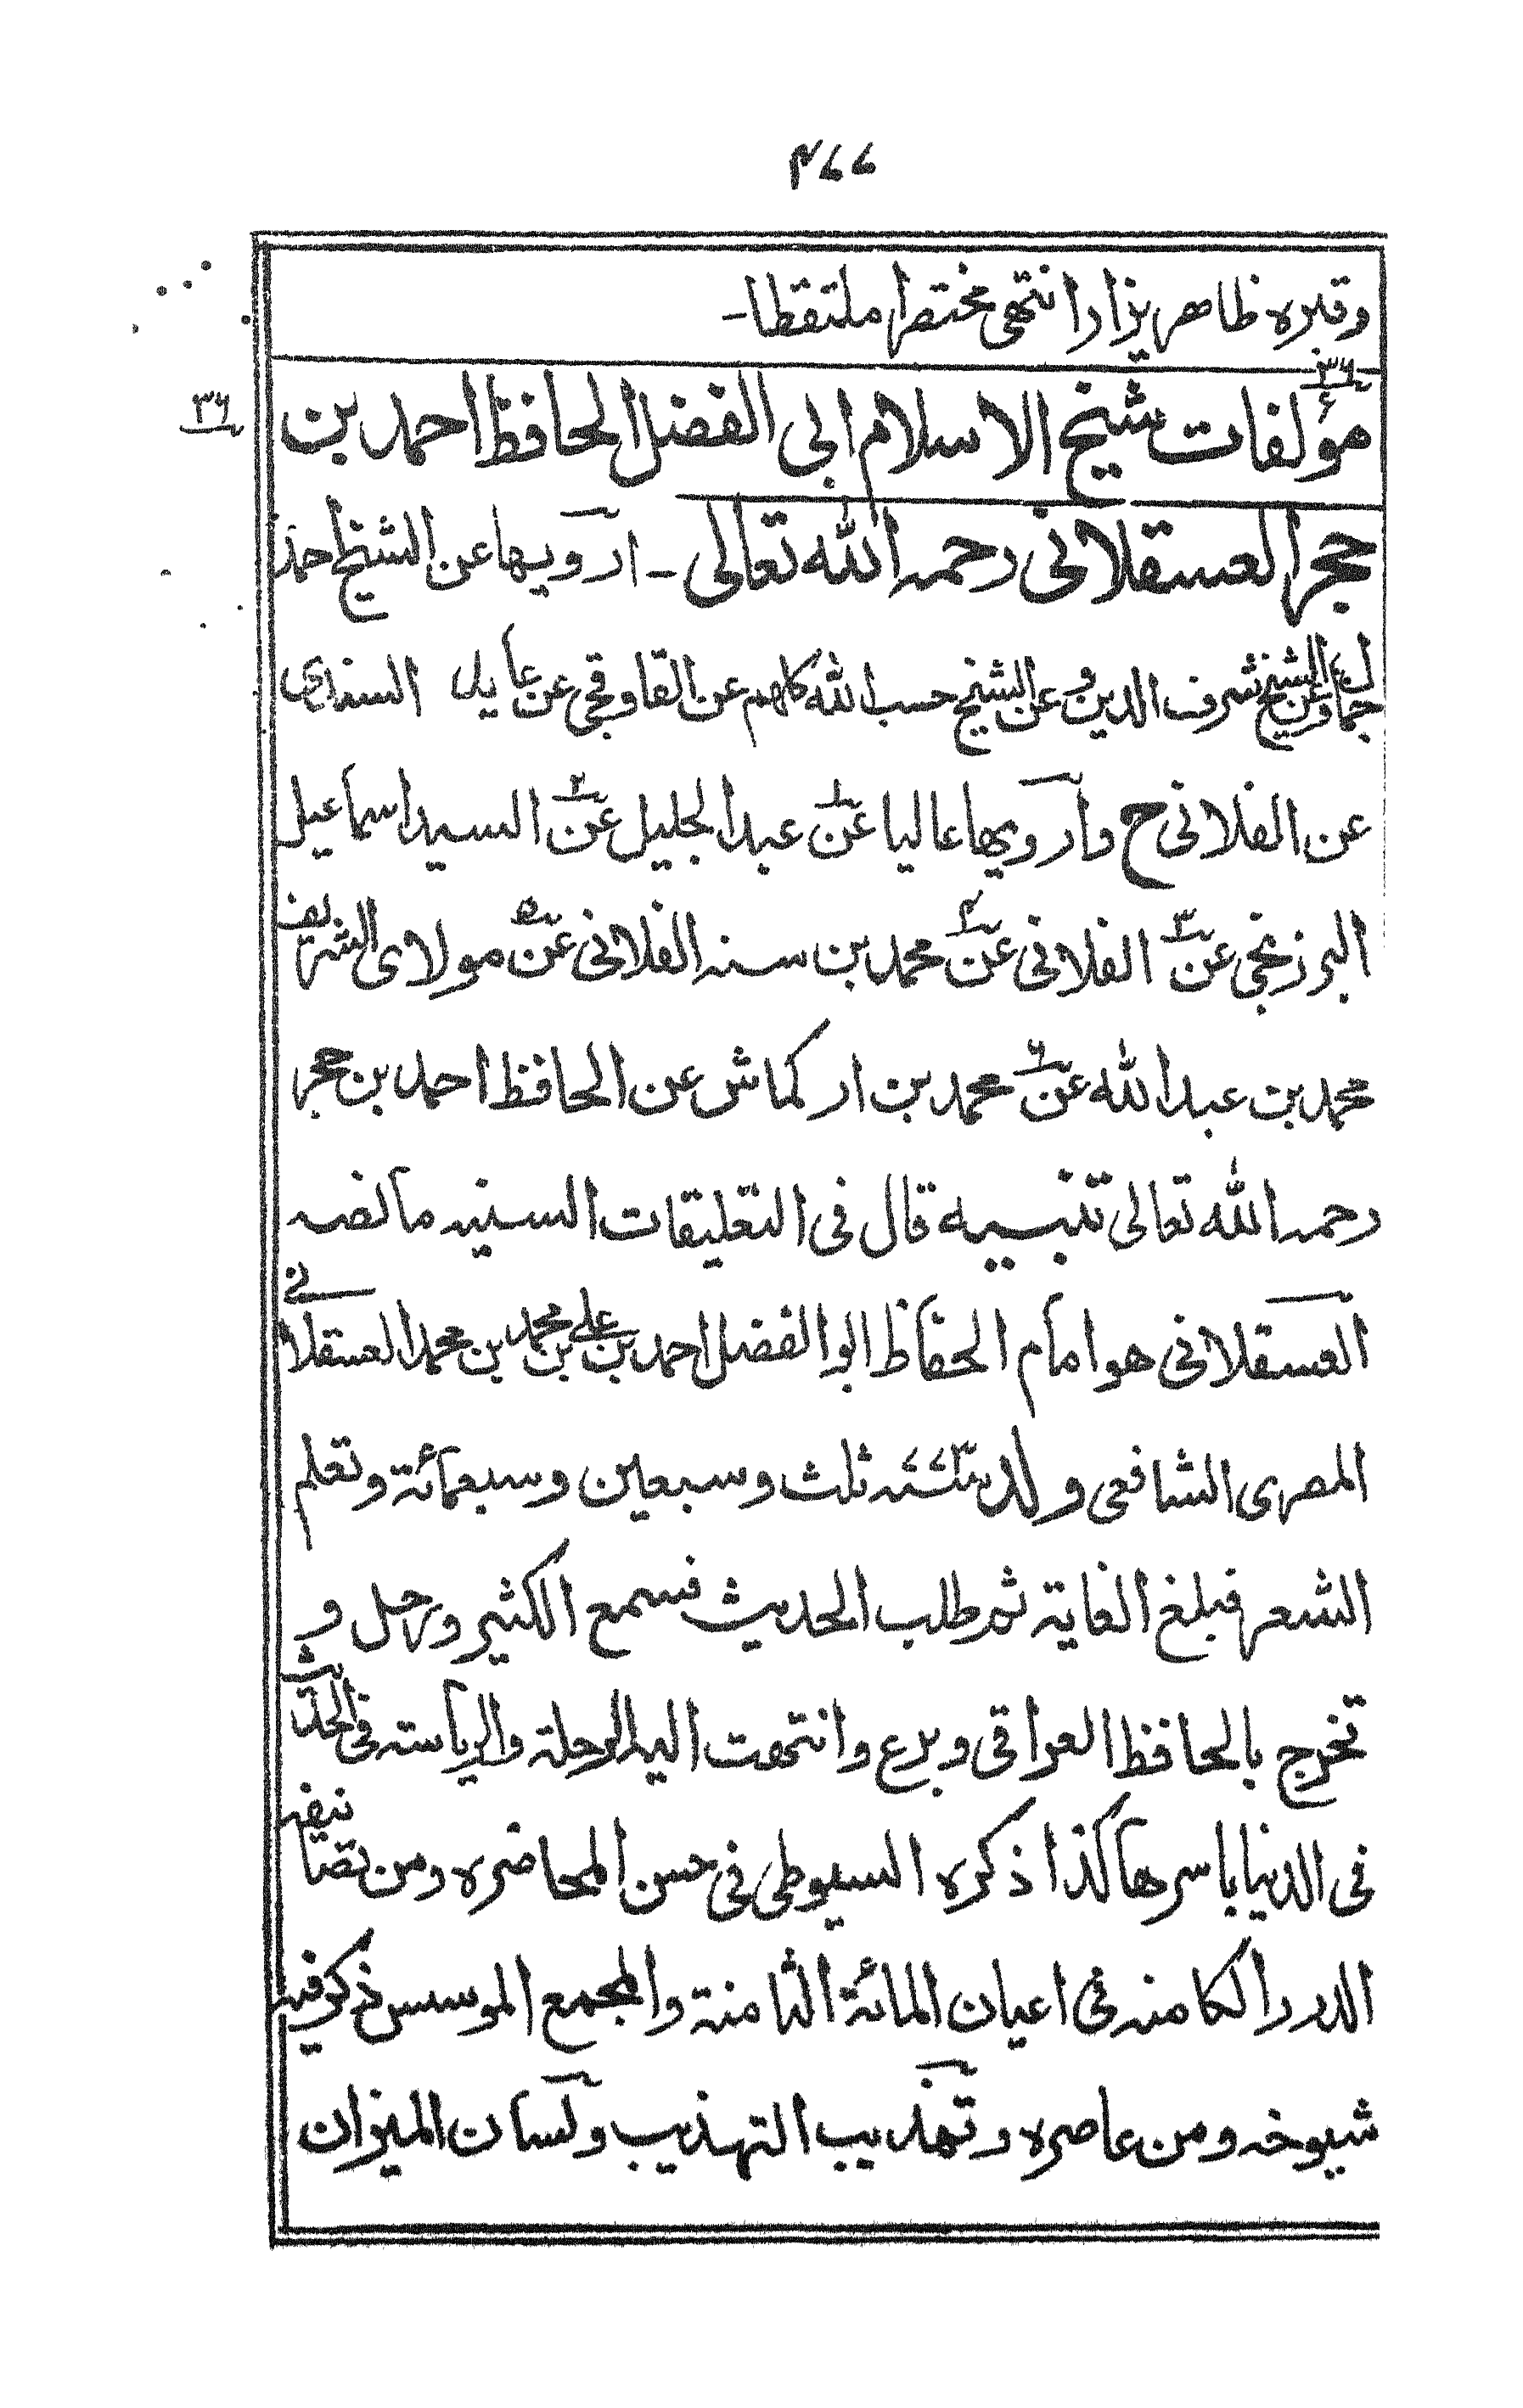 ٤٧٧
وقبره ظاهر يزار انتهى مختصرا ملتقطا-
٣٦
مؤلفات شيخ الاسلام ابى الفضل الحافظ احمد بن
٣٦
حجر العسقلانى رحمه الله تعالى - ارويها عن الشيخ احمد
جمال وعن الشيخ شرف الدين وعن الشيخ حسب الله كلهم عن القاوقجى عن عابد السندى
عن الفلانى ح وارويها عاليا عن١ عبد الجليل عن٢ السيد اسماعيل
البرزنجى عن٣ الفلانى عن٤ محمد بن سنه الفلانى عن٥ مولاى الشريف
محمد بن عبد الله عن٦ محمد بن اركماش عن الحافظ احمد بن حجر
رحمه الله تعالى تنبيه قال فى التعليقات السنيه ما نصه
العسقلانى هو امام الحفاظ ابو الفضل احمد بن على بن محمد بن محمد العسقلانى
المصرى الشافعى ولد سنة ٧٧٣ ثلث وسبعين وسبعمائة وتعلم
الشعر فبلغ الغاية ثم طلب الحديث فسمع الكثير ورحل و
تخرج بالحافظ العراقى وبرع وانتهت اليه الرحلة والرياسته فى الحديث
فى الدنيا باسرها كذا ذكره السيوطى فى حسن المحاضره ومن تصانيفه
الدرر الكامنه فى اعيان المائة الثامنة والمجمع الموسس ذكر فيه
شيوخه ومن عاصره وتهذيب التهذيب ولسان الميزان